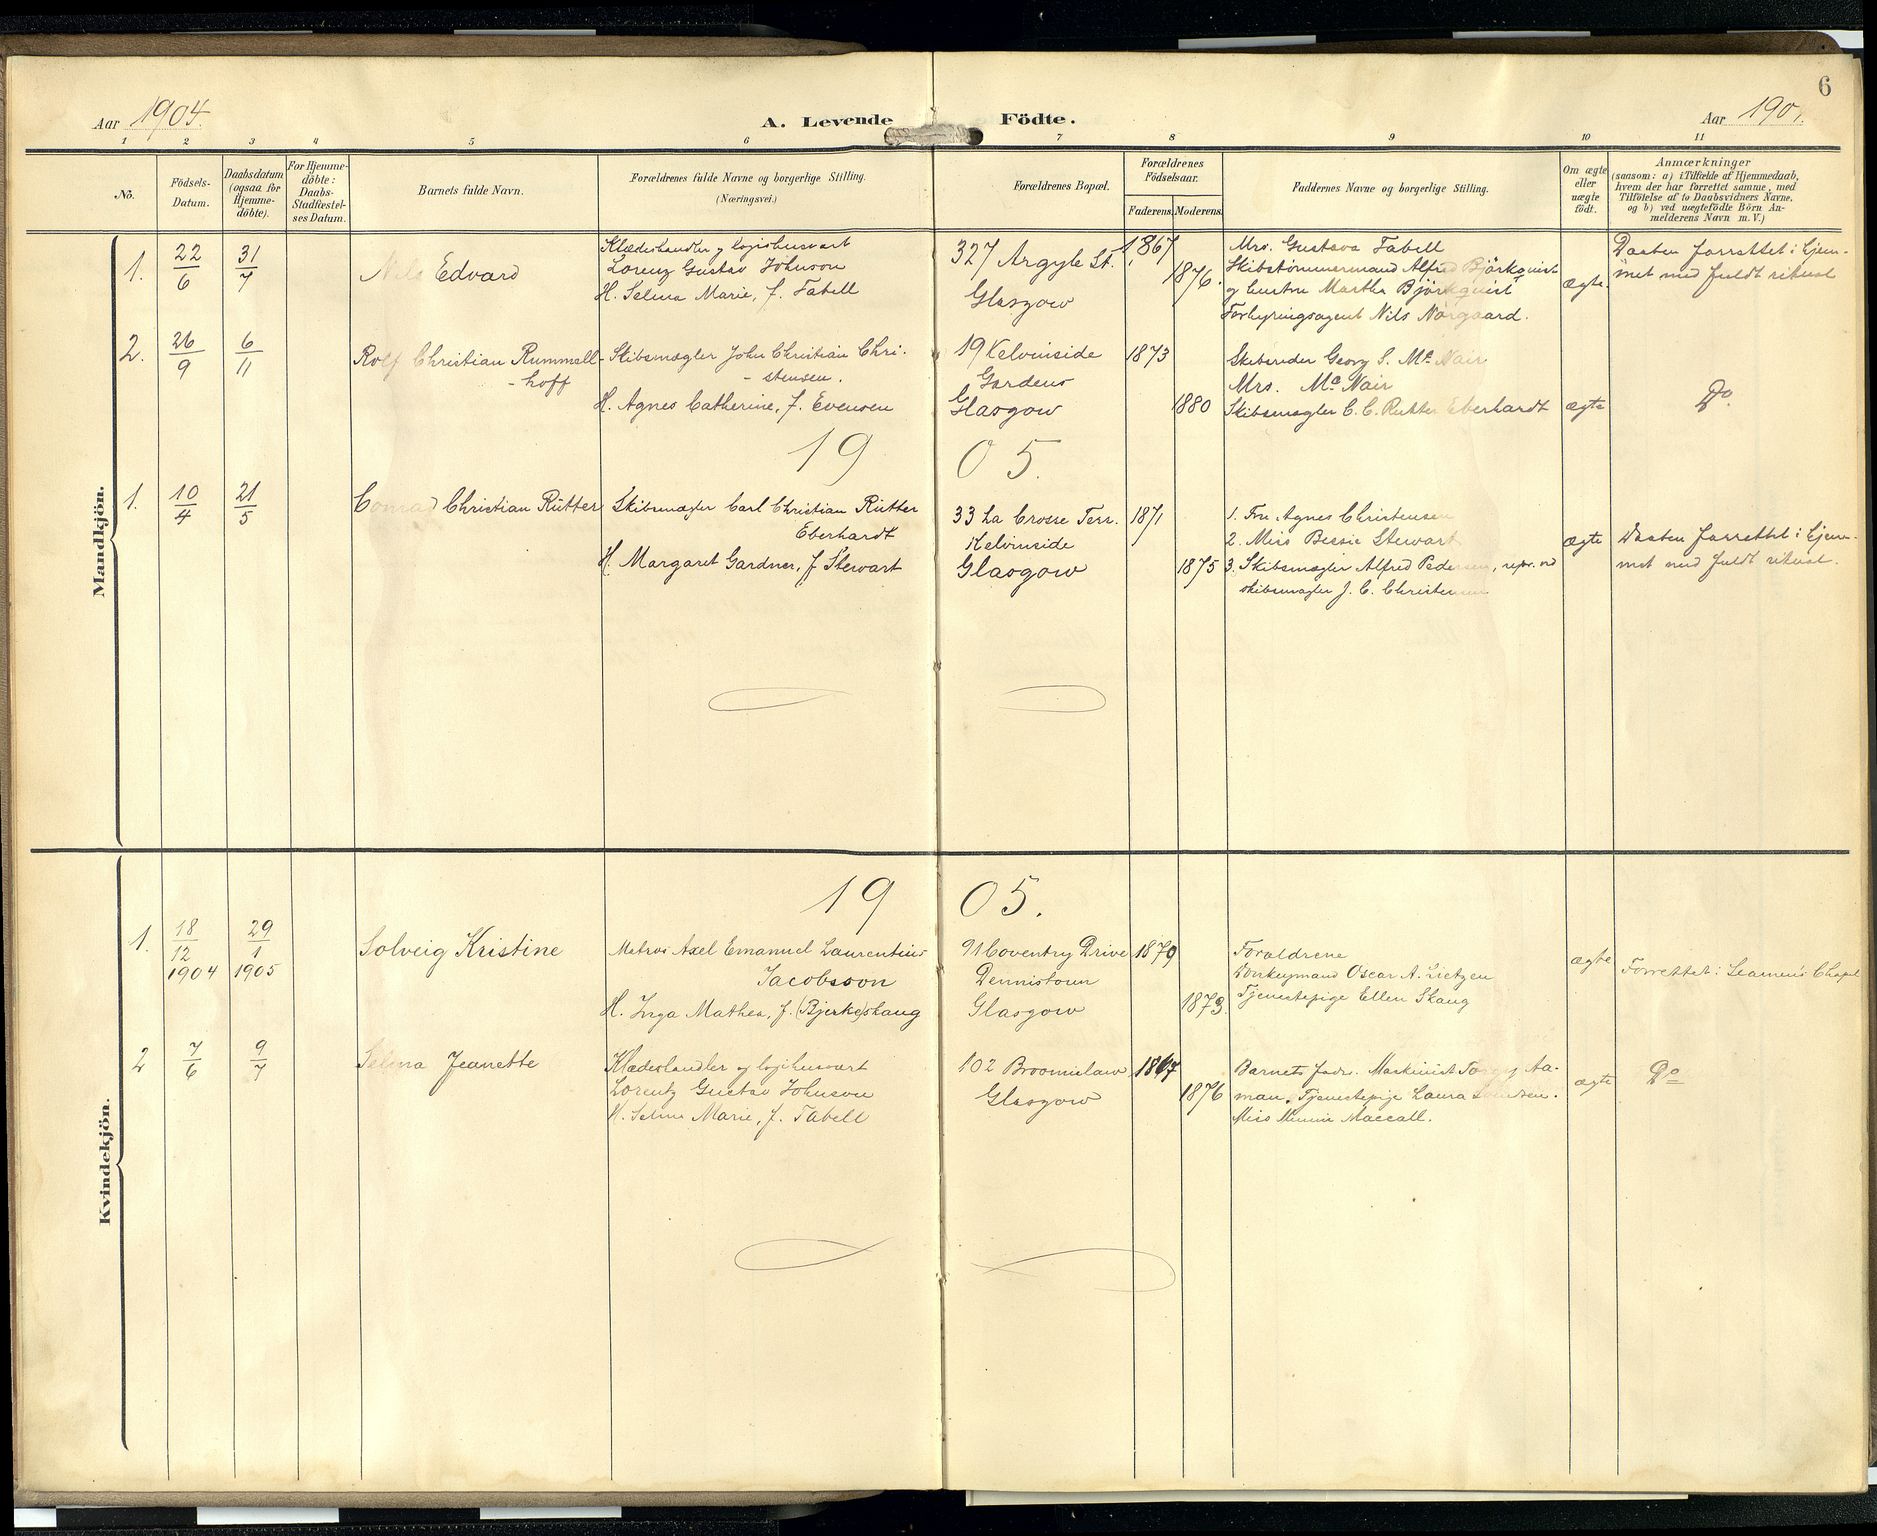 6
Aar 1904.
A. Levende Födte.
Aar 190
1 2 3 4 5 6 7 8 9 10 11
No.
Födsels-Datum.
Daabsdatum (ogsaa for Hjemme-döbte).
For Hjemme-döbte: Daabs-Stadfæstel-ses Datum.
Barnets fulde Navn.
Forældrenes fulde Navne og borgerlige Stilling.
(Næringsvei.)
Forældrenes Bopæl.
Forældrenes Födselsaar.
Faderens. Moderens.
Faddernes Navne og borgerlige Stilling.
Om ægte eller uægte födt.
Anmærkninger
(saasom: a) i Tilfælde af Hjemmedaab,
hvem der har forrettet samme, med
Tilföielse af to Daabsvidners Navne,
og b) ved uægtefödte Börn An-
melderens Navn m. V.)
Mandkjön.
1. 22/6 31/7
Nils Edvard
Klædeshandler og logishusvært
Lorenz Gustav Johnson
H. Selma Marie, f. Tabell
327 Argyle St.
Glasgow
1867
1876.
Mrs. Gustava Tabell
Skibstømmermand Alfred Björkquist
og hustru Martha Björkquist
Forhyringsagent Nils Nörgaard.
ægte
Daaben forrettet i hjem-
met med fuldt ritual
2. 26/9 6/11
Rolf Christian Rummell-
-hoff
Skibsmægler John Christian Chri-
-stensen.
H. Agnes Catherine, f. Evensen
19 Kelvinside
Gardens
Glasgow
1873
1880
Skibsreder Georg S. Mc Nair
Mrs. Mc Nair
Skibsmægler C. C. Rutter Eberhardt
ægte
Do.
19 05.
1. 10/4 21/5
Conrad Christian Rütter
Skibsmægler Carl Christian Rütter
Eberhardt
H. Margaret Gardner, f Stewart
33 La Crosse Terr.
Kelvinside
Glasgow
1871
1875
1. Fru Agnes Christensen
2. Miss Bessie Stewart
3. Skibsmægler Alfred Pedersen, repr. ved
skibsmægler J. C. Christensen
ægte
Daaben forrettet i hjem-
met med fuldt ritual.
Kvindekjön.
19 05.
1. 18/12 1904 29/1 1905
Solveig Kristine
Matros Axel Emanuel Laurentius
Jacobsson
H. Inga Mathea, f. (Bjerke)skaug
91 Coventry Drive
Dennistoun
Glasgow
1879
1873.
Forældrene
Donkeymand Oscar A. Lietzen
Tjenestepige Ellen Skaug
ægte
Forrettet i Seamen's Chapel
2 7/6 9/7
Selma Jeanette
Klædeshandler og logihusvært
Lorentz Gustav Johnson
H. Selma Marie, f. Tabell
102 Broomielaw
Glasgow
1867
1876
Barnets fader. Maskinist Aa-
man. Tjenestepige Laura
Miss Minnie Maccall.
ægte
Do